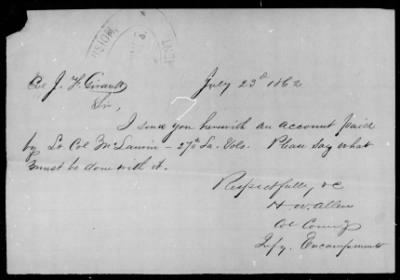 July 23d 1862
Col J. F. Girault
Sir,
I send you herewith an account paid
by Lt Col McLaurin - 27th La. Vols. Please say what
must be done with it.
Respectfully, &c
H. W. Allen
Col Comdg
Infy. Encampment